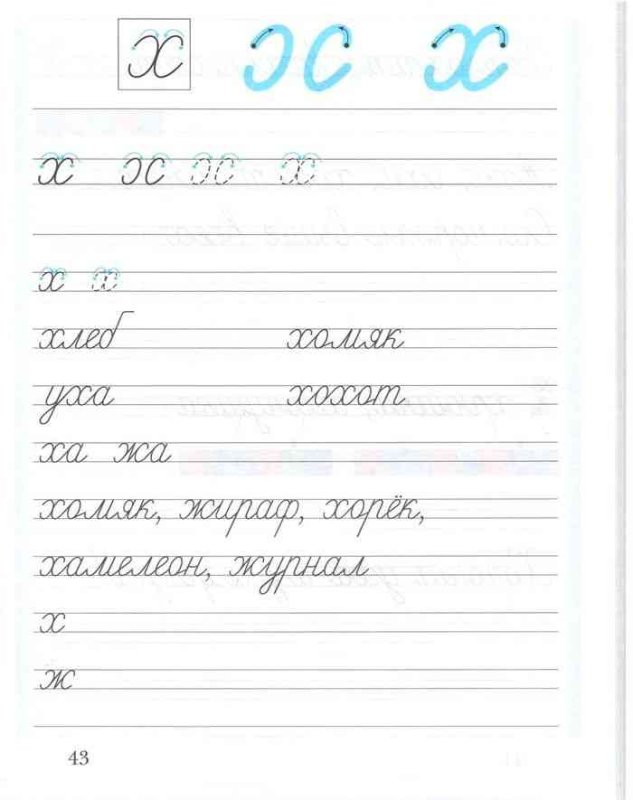 х
х х
х х
хлеб хомяк
уха хохот
ха жа
хомяк, жираф, хорёк,
хамелеон, журнал
х
ж
43